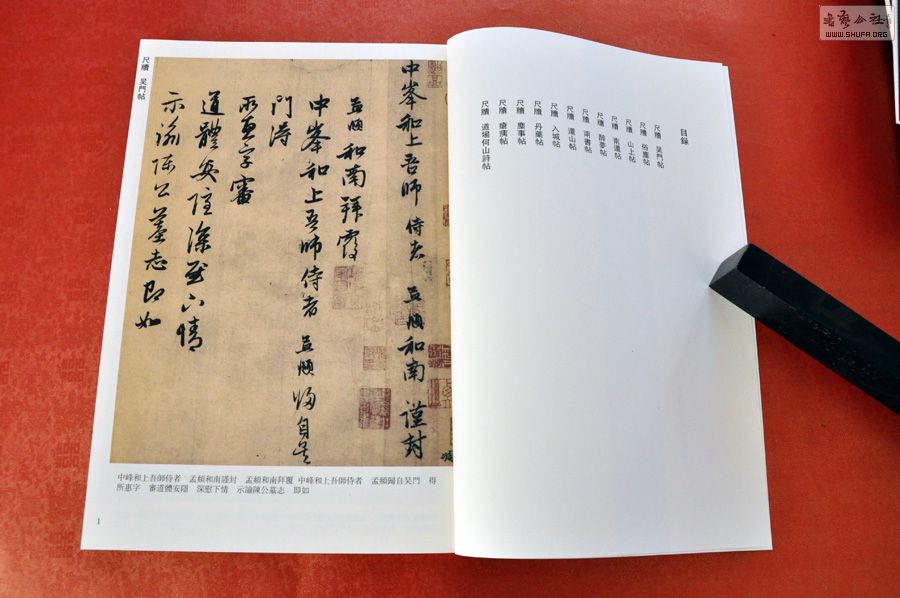 書藝公社
WWW.SHUFA.ORG
目録
尺牘 吳門帖
尺牘 俗塵帖
尺牘 山上帖
尺牘 南還帖
尺牘 醉夢帖
尺牘 兩書帖
尺牘 還山帖
尺牘 入城帖
尺牘 丹藥帖
尺牘 塵事帖
尺牘 瘡痍帖
尺牘 道場何山詩帖
中峯和上吾師 侍者 孟頫和南 謹封
孟頫和南拜覆
中峯和上吾師侍者 孟頫歸自吳
門得
所惠字審
道體安隱深慰下情
示諭陳公墓志即如
尺牘 吳門帖
中峰和上吾師侍者 孟頫和南謹封 孟頫和南拜覆 中峰和上吾師侍者 孟頫歸自吳門 得
所惠字 審道體安隱 深慰下情 示諭陳公墓志 即如
1